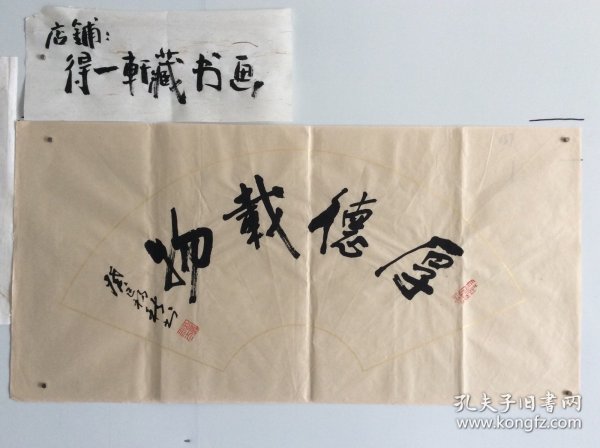 店鋪:
得一軒藏书画
厚德載物
癸巳
孔夫子旧书网
www.kongfz.com